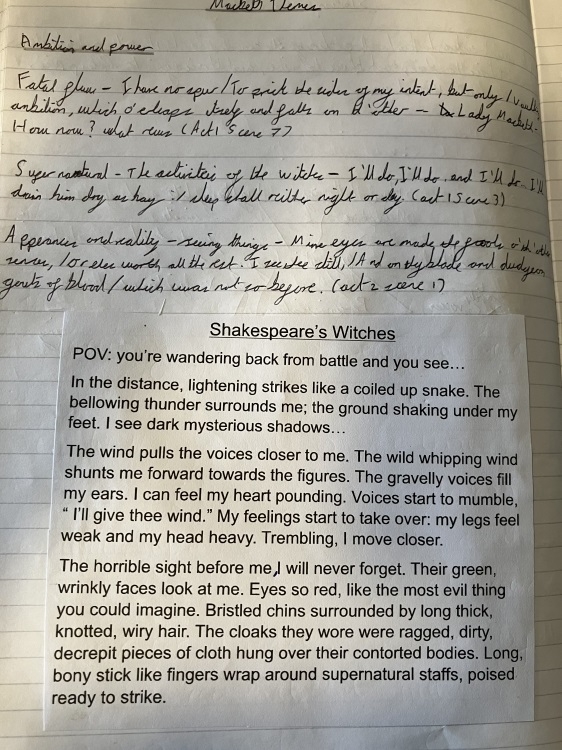 Macbeth Themes
Ambition and power
Fatal flaw - I have no spur / To prick the sides of my intent, but only /
ambition, which o'erleaps itself and falls on th'other - Lady Macbeth.
How now? what news (Act 1 Scene 7)
Supernatural - The activities of the witches - I'll do, I'll do and I'll do. I'll
drain him dry as hay :/ sleep shall neither night or day (act 1 Scene 3)
Appearance and reality - seeing things - Mine eyes are made the fools o'th'other
senses, / or else worth all the rest. I see thee still, / And on thy blade and dudgeon
gouts of blood / which was not so before. (act 2 scene 1)
Shakespeare's Witches
POV: you're wandering back from battle and you see…
In the distance, lightening strikes like a coiled up snake. The
bellowing thunder surrounds me; the ground shaking under my
feet. I see dark mysterious shadows…
The wind pulls the voices closer to me. The wild whipping wind
shunts me forward towards the figures. The gravelly voices fill
my ears. I can feel my heart pounding. Voices start to mumble,
“ I'll give thee wind.” My feelings start to take over: my legs feel
weak and my head heavy. Trembling, I move closer.
The horrible sight before me,I will never forget. Their green,
wrinkly faces look at me. Eyes so red, like the most evil thing
you could imagine. Bristled chins surrounded by long thick,
knotted, wiry hair. The cloaks they wore were ragged, dirty,
decrepit pieces of cloth hung over their contorted bodies. Long,
bony stick like fingers wrap around supernatural staffs, poised
ready to strike.